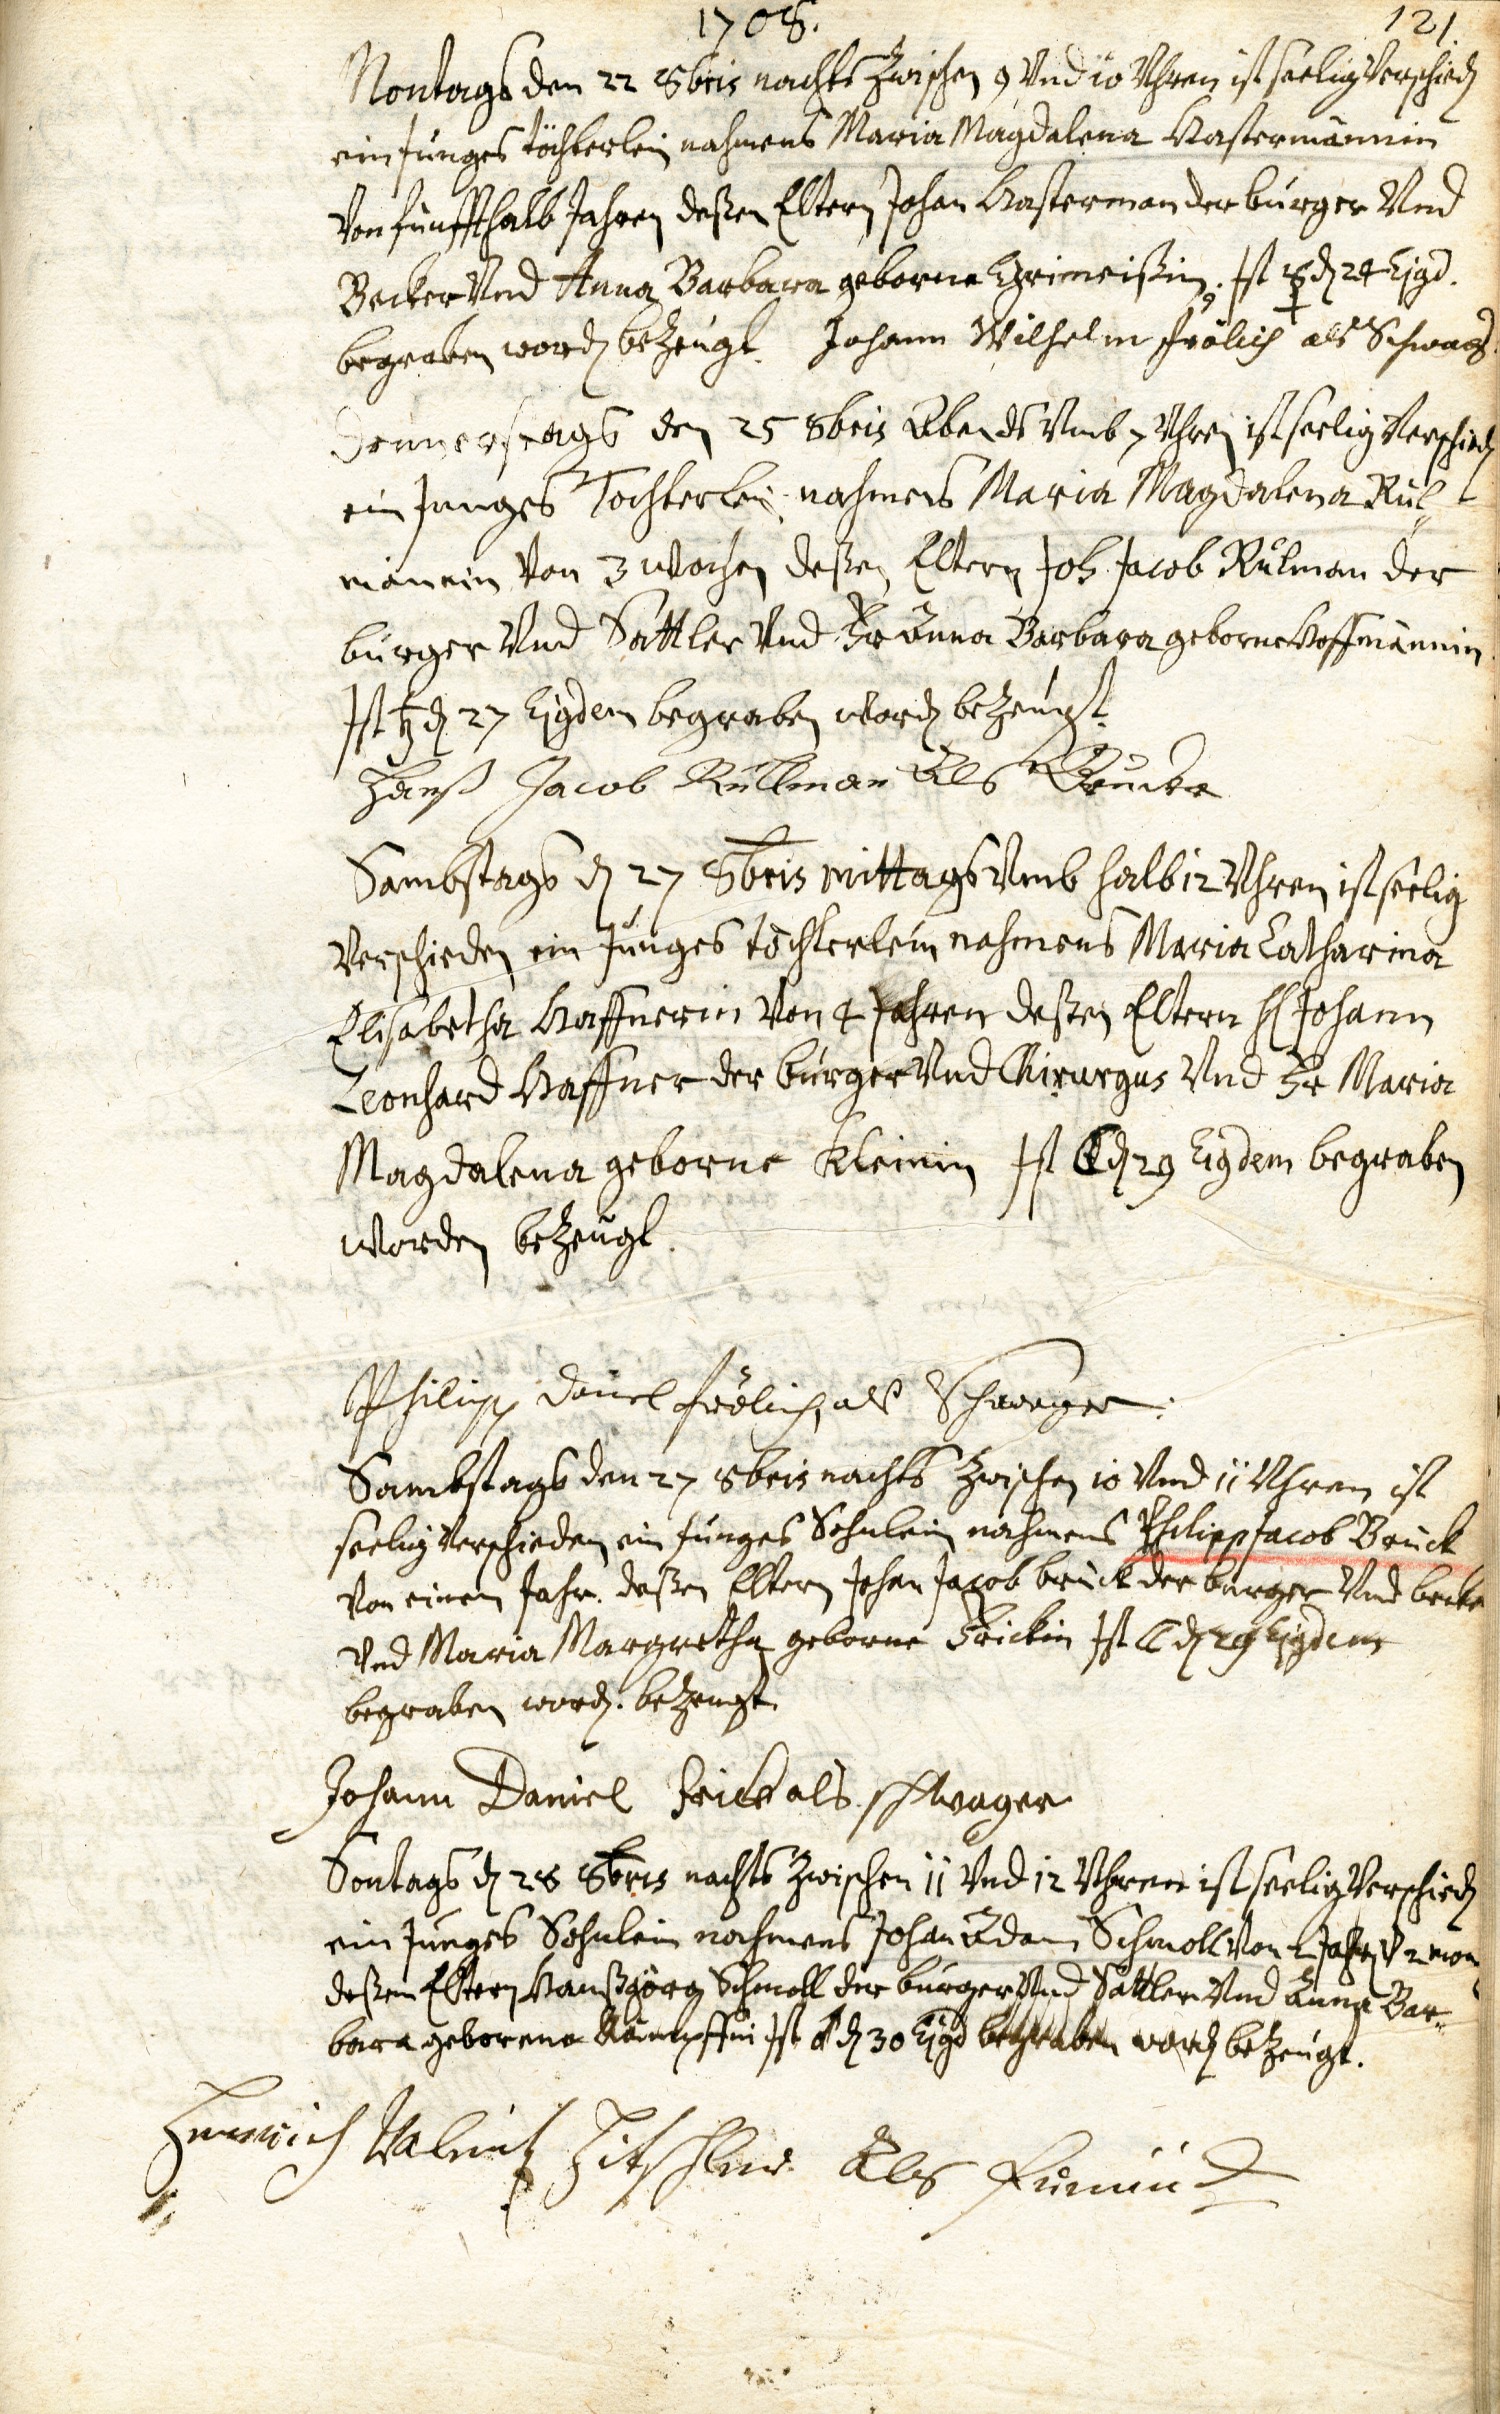 1708. 121.
Montags den 22 8bris nachts zwischen 9 Vnd 10 Vhren ist seelig Verschied
ein junges töchterlein nahmens Maria Magdalena Kastermännin
Von fünffthalb Jahren deßen Eltern Johan Kasterman der burger Vnd
Becker Vnd Anna Barbara geborne Grimeißin. Ist ☿ d 24 Ejgd.
begraben word bezeugt. Johann Wilhelm Frölich als Schwag
Donnerstags den 25 8bris Abends Vmb 7 Vhren ist seelig Verschied
ein junges Tochterlein nahmens Maria Magdalena Rül„
mannin Von 3 Wochen deßen Eltern Joh. Jacob Rülman der
burger Vnd Sattler Vnd Fr Anna Barbara geborne Hoffmännin
Ist ♄ d 27 Ejgdem begraben word bezeugt.
Hanß Jacob Rüllman Als
Sambstags d 27 8bris mittags Vmb halb 12 Vhren ist seelig
Verschieden ein junges töchterlein nahmens Maria Catharina
Elisabetha Haffnerin Von 4 Jahren deßen Eltern H Johann
Leonhard Haffner der burger Vnd Chirurgus Vnd Fr Maria
Magdalena geborne Kleinin Ist ☾ d 29 Eigdem begraben
worden bezeugt.
Philipp Daniel Frölich, als Schwager.
Sambstags den 27 8bris nachts zwischen 10 Vnd 11 Vhren ist
seelig Verschieden ein junges Sohnlein nahmens Philipp Jacob Bruck
Von einem Jahr. deßen Eltern Johan Jacob bruck der burger Vnd becke
Vnd Maria Margretha geborne Frickin Ist ☾ d 29 Ejgdem
begraben word. bezeugt.
Johann Daniel Frick als schwager
Sontags d 28 8bris nachts zwischen 11 Vnd 12 Vhren ist seelig Verschied
ein junges Sohnlein nahmens Johan Adam Schmoll Von Jahr 2 mon
deßen Eltern Hanßgörg Schmoll der burger Vnd Sattler Vnd Anna Bar„
bara geborene Kämpffin Ist ♂ d 30 Ejgd begraben word bezeugt.
Als